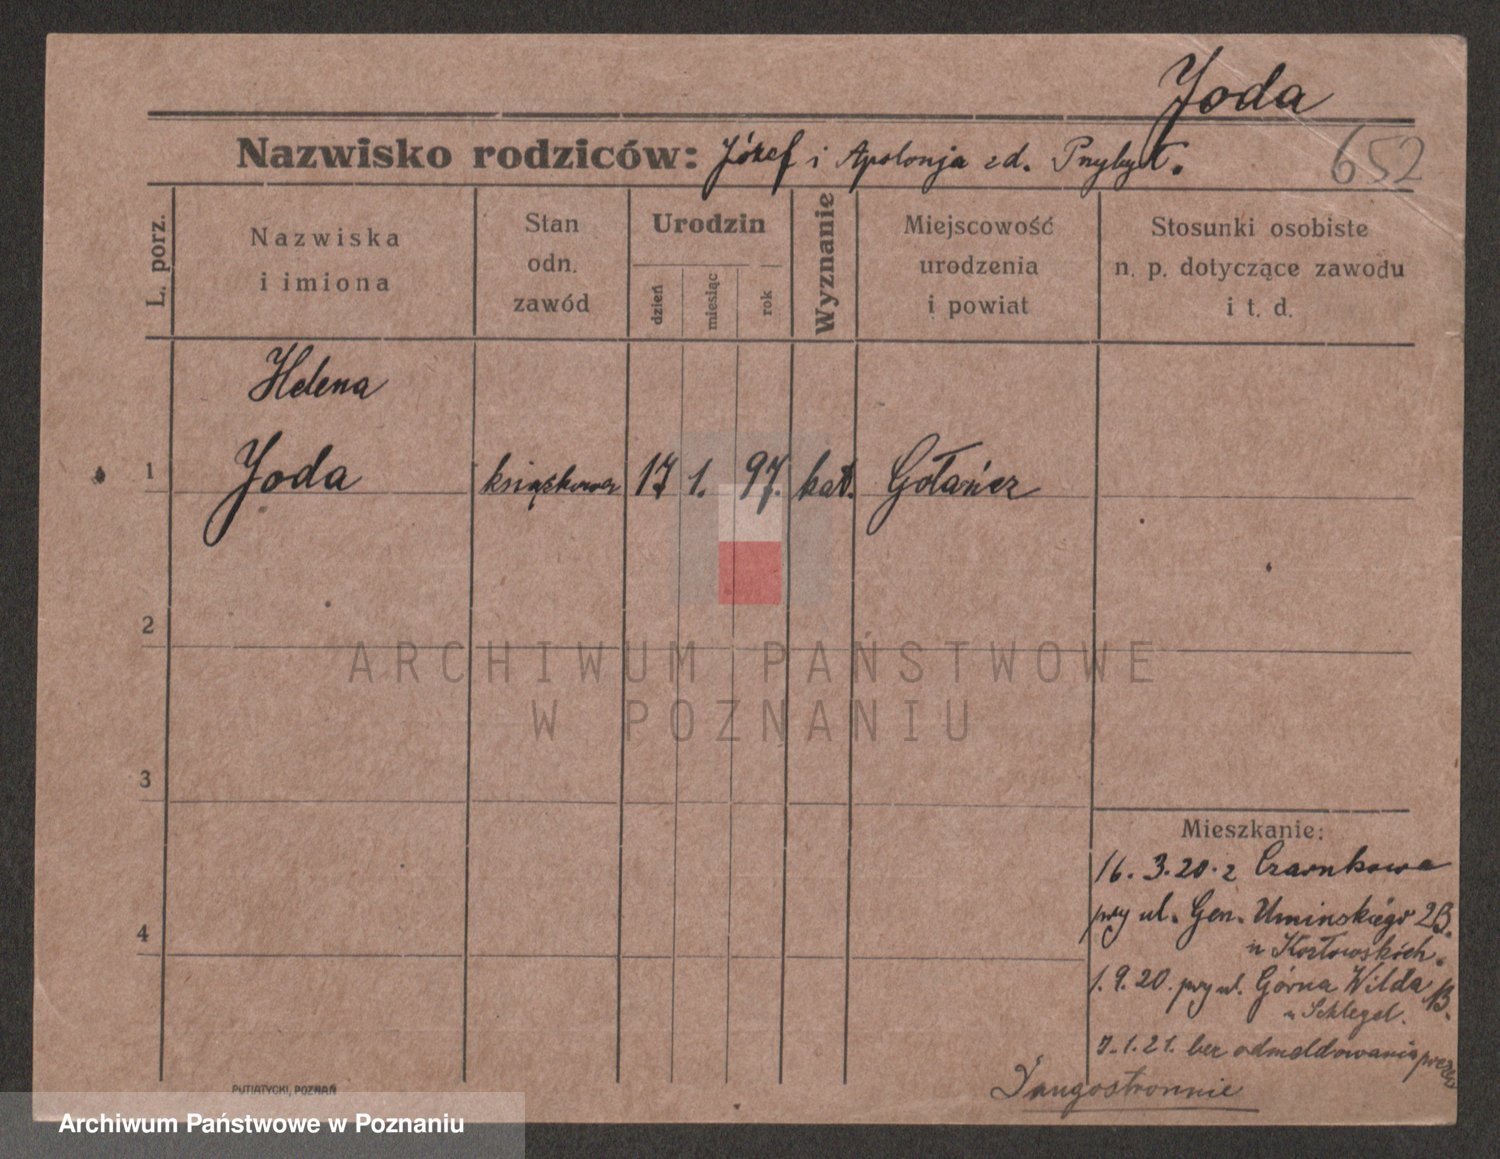 Joda
Nazwisko rodziców: Józef i Apolonja zd. Przybył.
652
L. porz.
Nazwiska
i imiona
Stan
odn.
zawód
Urodzin
dzień
miesiąc
rok
Wyznanie
Miejscowość
urodzenia
i powiat
Stosunki osobiste
n. p. dotyczące zawodu
i t. d.
Helena
1 Joda książkowa 17 1. 97. kat. Gołańcz
2
ARCHIWUM PAŃSTWOWE
W POZNANIU
3
Mieszkanie:
16. 3. 20. z Czarnkowa
przy ul. Gen. Umińskiego 2B.
u Kozłowskich.
4
1. 9. 20. przy ul. Górna Wilda
u Schlegel.
7. 1. 21. bez odmeldowania przez
PUTIATYCKI, POZNAŃ
Archiwum Państwowe w Poznaniu